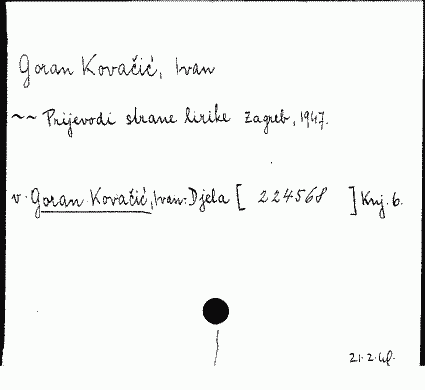 Goran Kovačić, Ivan
~~ Prijevodi strane lirike Zagreb, 1947.
v. Goran Kovačić, Ivan: Djela [ 224568 ] Knj. 6.
21.2.